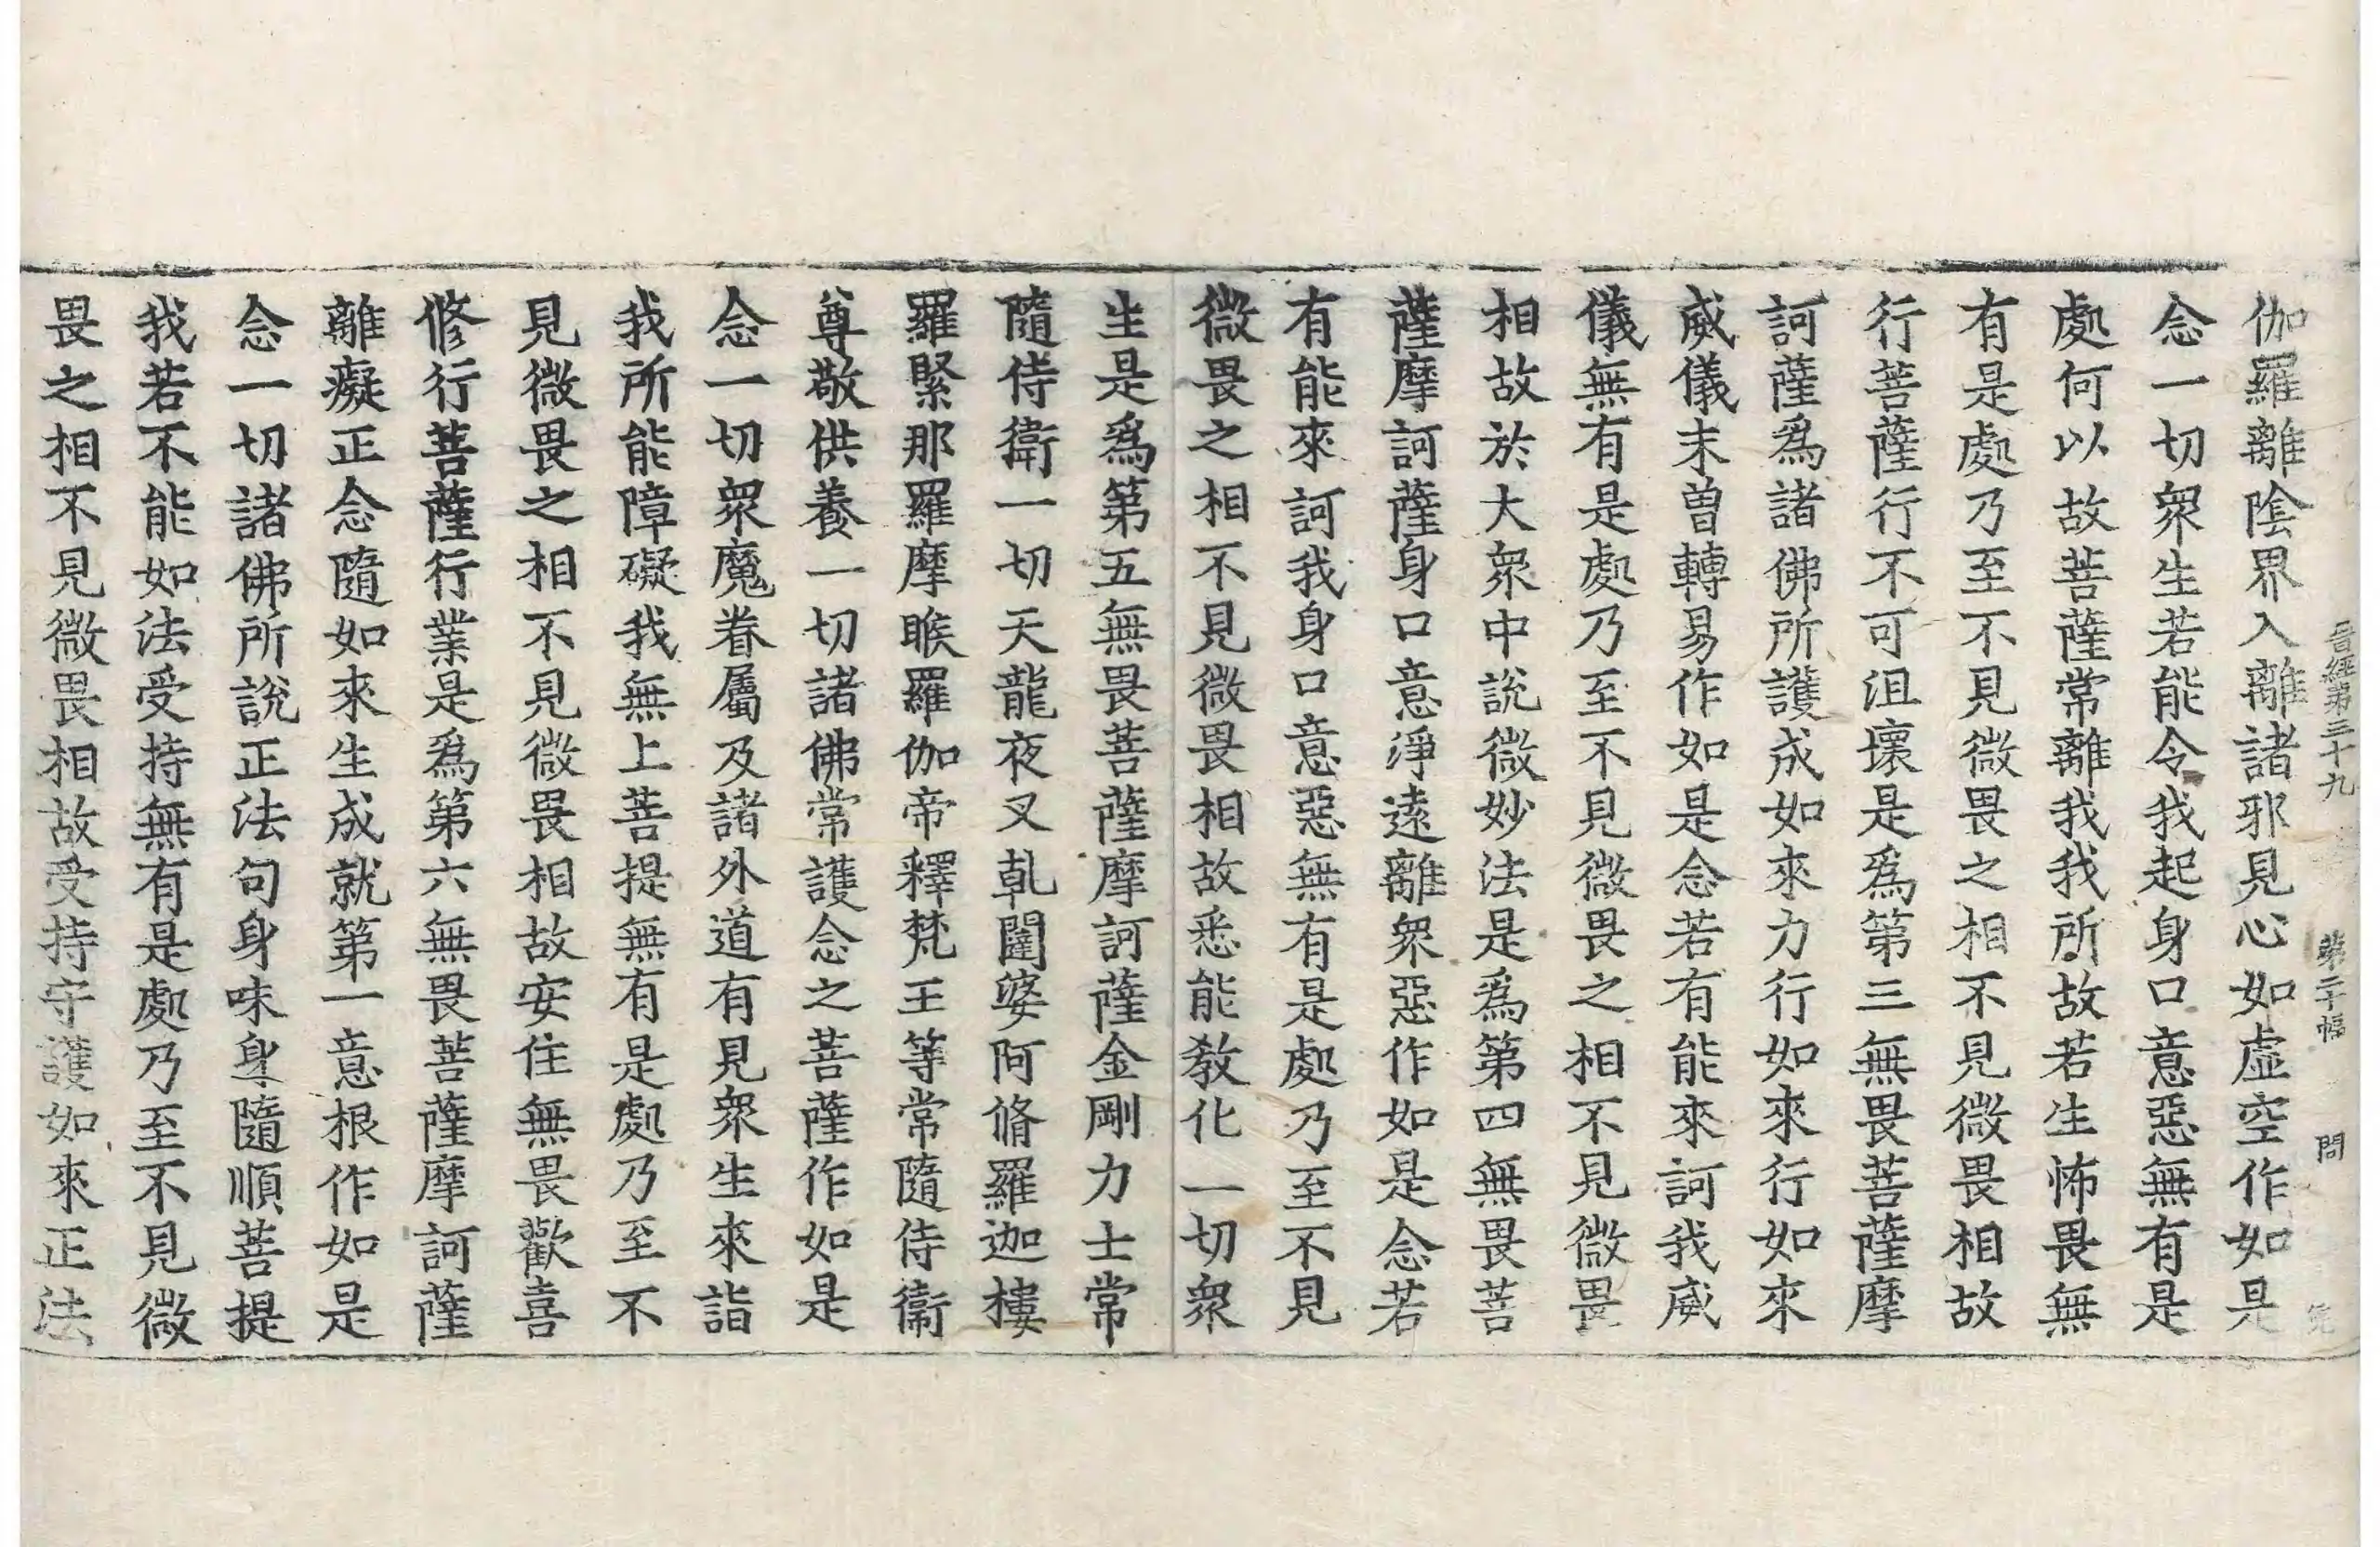 晋經第三十九 第二十幅 問
伽羅離陰界入離諸邪見心如虛空作如是
念一切衆生若能令我起身口意惡無有是
處何以故菩薩常離我我所故若生怖畏無
有是處乃至不見微畏之相不見微畏相故
行菩薩行不可沮壞是爲第三無畏菩薩摩
訶薩爲諸佛所護成如來力行如來行如來
威儀末曾轉易作如是念若有能來訶我威
儀無有是處乃至不見微畏之相不見微畏
相故於大衆中說微妙法是爲第四無畏菩
薩摩訶薩身口意淨遠離衆惡作如是念若
有能來訶我身口意惡無有是處乃至不見
微畏之相不見微畏相故悉能教化一切衆
生是爲第五無畏菩薩摩訶薩金剛力士常
隨侍衛一切天龍夜叉乹闥婆阿脩羅迦樓
羅緊那羅摩睺羅伽帝釋梵王等常隨侍衛
尊敬供養一切諸佛常護念之菩薩作如是
念一切衆魔眷屬及諸外道有見衆生來詣
我所能障礙我無上菩提無有是處乃至不
見微畏之相不見微畏相故安住無畏歡喜
修行菩薩行業是爲第六無畏菩薩摩訶薩
離癡正念隨如來生成就第一意根作如是
念一切諸佛所說正法句身味身隨順菩提
我若不能如法受持無有是處乃至不見微
畏之相不見微畏相故受持守護如來正法